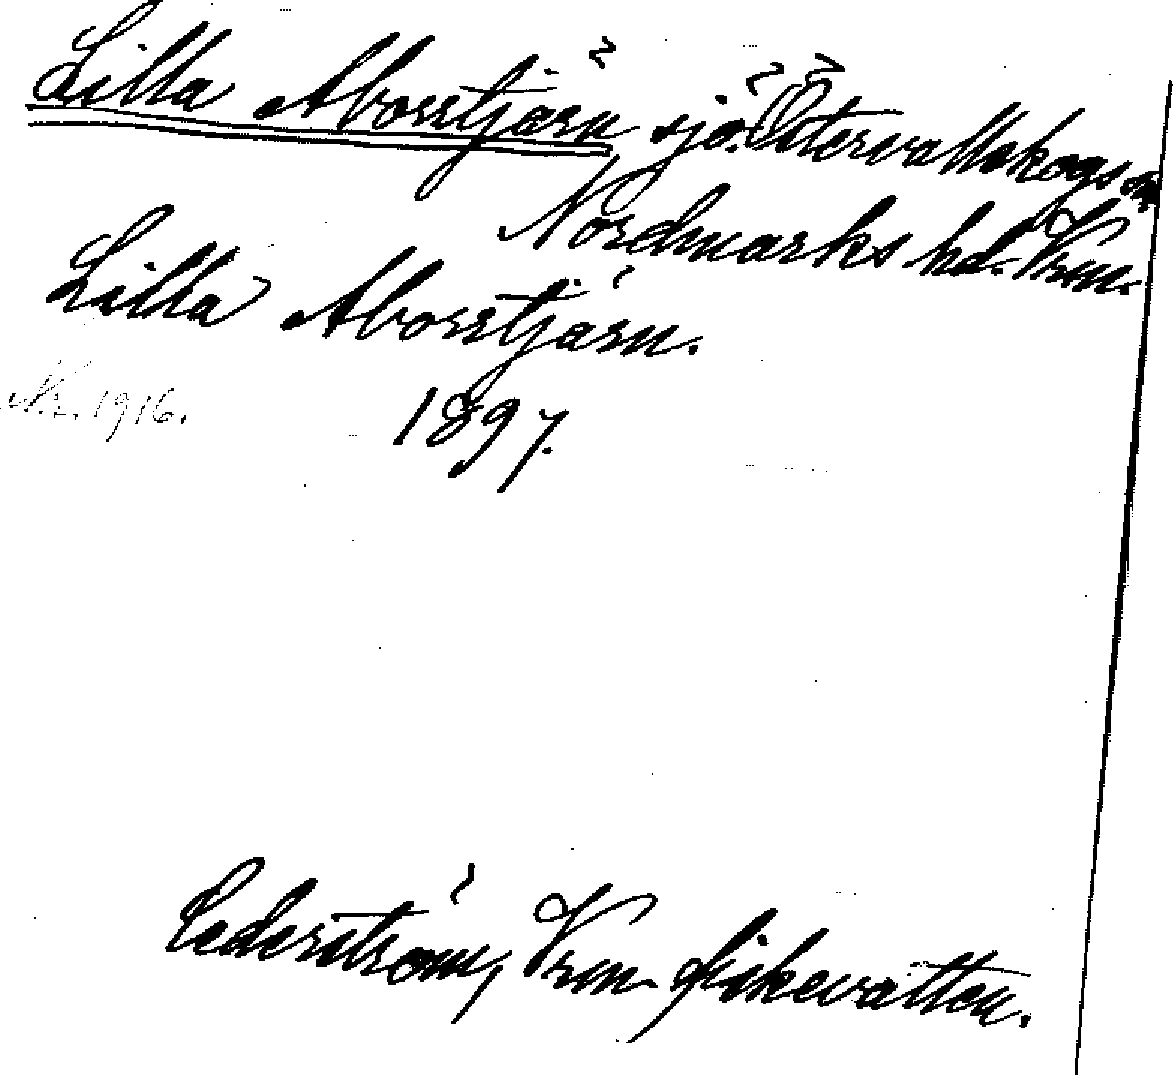 Lilla Aborrtjärn sjö. Östervallskogs sn
Nordmarks hd. Vrm.
Lilla Aborrtjärn.
1897.
Nr. 1916.
Cederström, Vrm. fiskevatten.